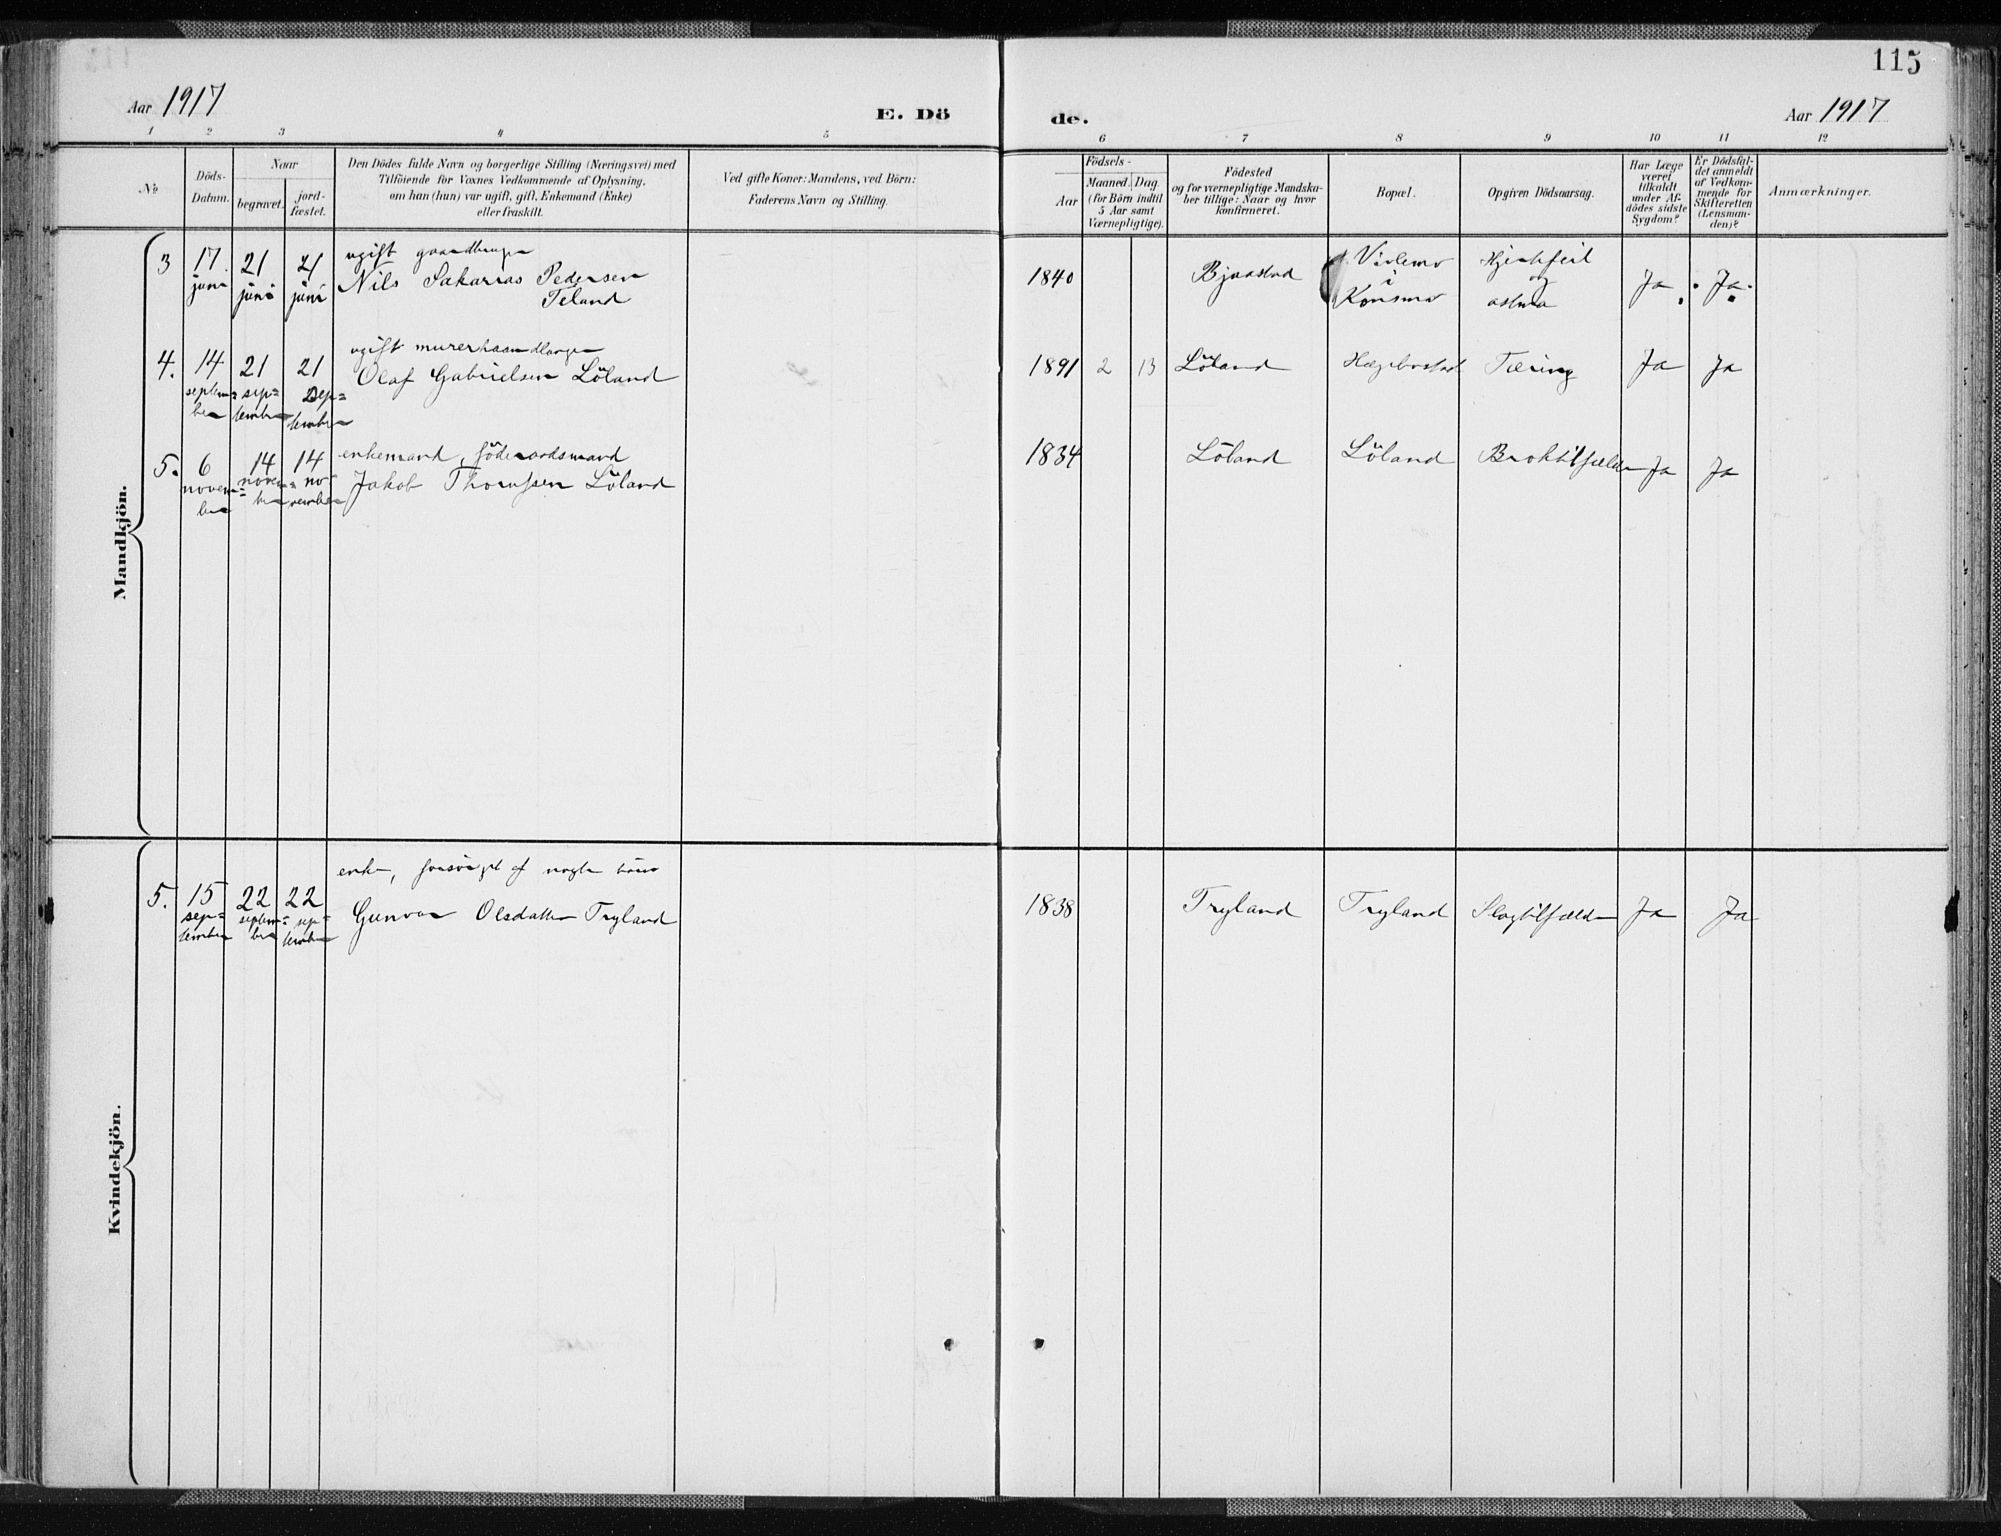 115
Aar 1917
E. Dö
de.
Aar 1917
1 2 3 4 5 6 7 8 9 10 11 12
No
Döds-
Datum.
Naar
begravet.
jord-
fæstet.
Den Dödes fulde Navn og borgerlige Stilling (Næringsvei) med
Tilföiende for Voxnes Vedkommende af Oplysning,
om han (hun) var ugift, gift, Enkemand (Enke)
eller fraskilt.
Ved gifte Koner: Mandens, ved Börn:
Faderens Navn og Stilling.
Födsels-
Aar
Maaned. Dag.
(for Börn indtil
5 Aar samt
Værnepligtige).
Födested
og for værnepligtige Mandska-
ber tillige: Naar og hvor
konfirmeret.
Bopæl.
Opgiven Dödsaarsag.
Har Læge
været
tilkaldt
under Af-
dödes sidste
Sygdom?
Er Dödsfal-
det anmeldt
af Vedkom-
mende for
Skifteretten
(Lensman-
den)?
Anmærkninger.
Mandkjön.
3 17 juni 21 juni 21 juni
ugift gaardbruger
Nils Sakarias Pedersen
Teland
1840 Bjaastad
i
Konsmo
Hjertefeil
og
astma
Ja Ja
4. 14 septem=ber 21 sep=tember 21 Sep=tember
ugift murerhaandlanger
Olaf Gabrielsen Löland
1891 2 13 Löland Hægebostad Tæring Ja Ja
5. 6 novem=ber 14 novem=ber 14 no=vember
enkemand, föderaadsmand
Jakob Thomssen Löland
1834 Löland Löland Broktilfælde Ja Ja
Kvindekjön.
5. 15 sep=tember 22 septem=ber 22 sep=tember
enke, forsörget af
Gunvor Olsdatter Tryland
1838 Tryland Tryland Slagtilfælde Ja Ja